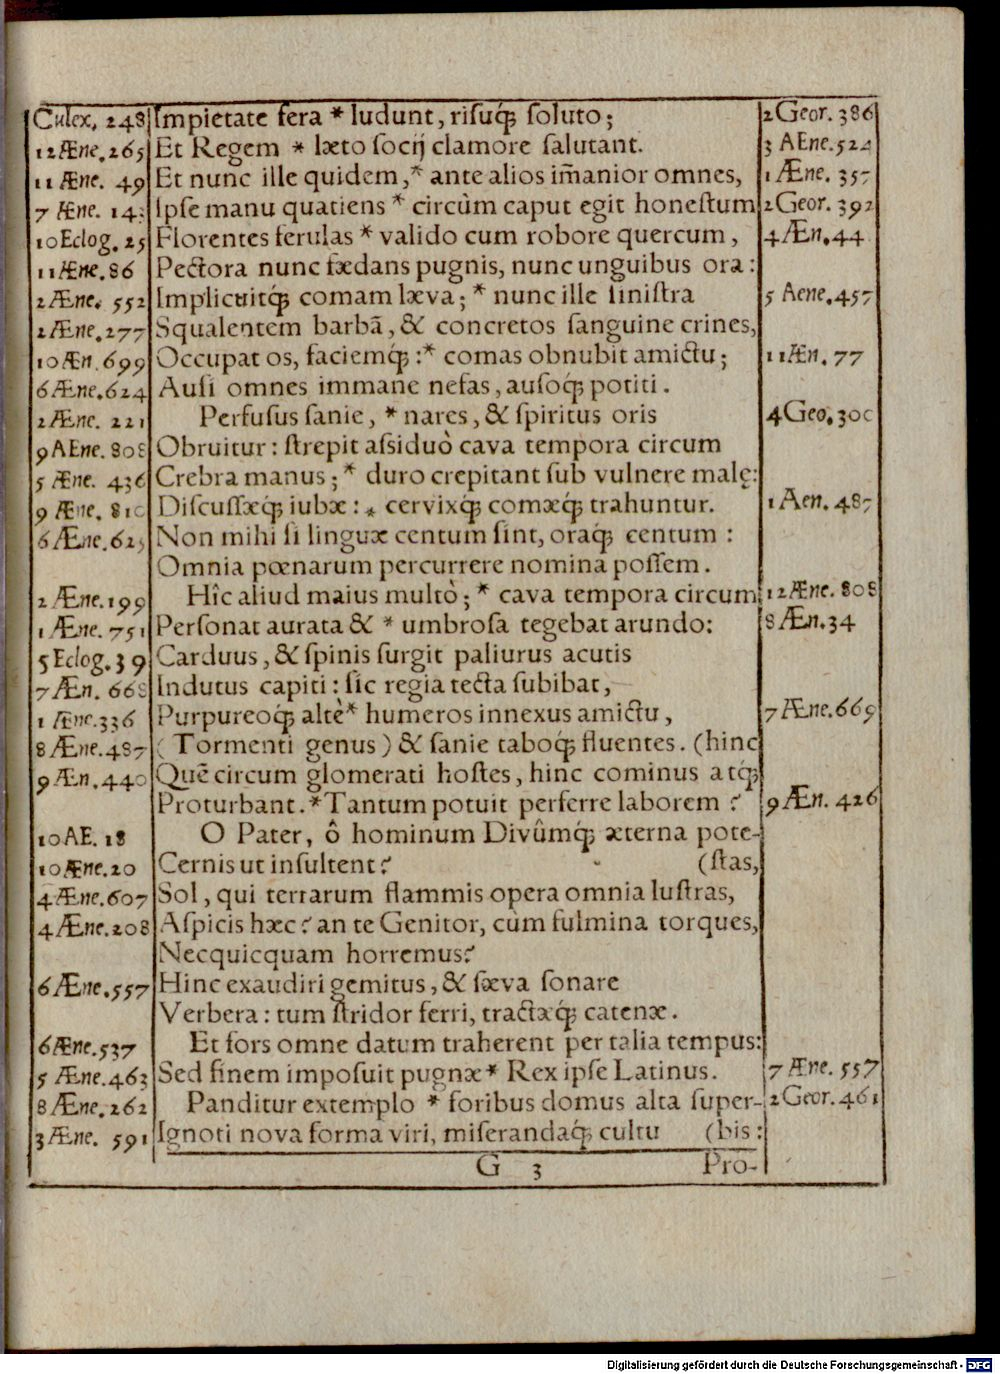 Culex. 248 Impietate fera * ludunt, risuq́; soluto; 2 Geor. 386
12 Æne. 265 Et Regem * læto socij clamore salutant. 3 AEne. 524
11 Æne. 49 Et nunc ille quidem, * ante alios im̃anior omnes, 1 Æne. 357
7 Æne. 143 Ipse manu quatiens * circùm caput egit honestum 2 Geor. 392
10 Eclog. 25 Florentes ferulas * valido cum robore quercum, 4 Æn. 44
11 Æne. 86 Pectora nunc fœdans pugnis, nunc unguibus ora:
2 Æne. 552 Implicuitq́; comam læva; * nunc ille sinistra 5 Aene. 457
2 Æne. 277 Squalentem barbã, & concretos sanguine crines,
10 Æn. 699 Occupat os, faciemq́; : * comas obnubit amictu; 11 Æn. 77
6 Æne. 624 Ausi omnes immane nefas, ausoq́; potiti.
2 Æne. 221 Perfusus sanie, * nares, & spiritus oris 4 Geo. 300
9 AEne. 808 Obruitur: strepit assiduò cava tempora circum
5 Æne. 436 Crebra manus; * duro crepitant sub vulnere malę:
9 Æne. 810 Discussæq́; iubæ: * cervixq́; comæq́; trahuntur. 1 Aen. 487
6 Æne. 625 Non mihi si linguæ centum sint, oraq́; centum:
Omnia pœnarum percurrere nomina possem.
2 Æne. 199 Hîc aliud maius multò; * cava tempora circum 12 Æne. 808
1 Æne. 751 Personat aurata & * umbrosa tegebat arundo: 8 Æn. 34
5 Eclog. 39 Carduus, & spinis surgit paliurus acutis
7 Æn. 668 Indutus capiti: sic regia tecta subibat,
1 Æne. 336 Purpureoq́; altè * humeros innexus amictu, 7 Æne. 669
8 Æne. 487 (Tormenti genus) & sanie taboq́; fluentes. (hinc
9 Æn. 440 Quẽ circum glomerati hostes, hinc cominus atq́;
Proturbant. * Tantum potuit perferre laborem? 9 Æn. 426
10 AE. 18 O Pater, ô hominum Divûmq́; æterna pote-
10 Æne. 20 Cernis ut insultent? (stas,
4 Æne. 607 Sol, qui terrarum flammis opera omnia lustras,
4 Æne. 208 Aspicis hæc? an te Genitor, cùm fulmina torques,
Necquicquam horremus?
6 Æne. 557 Hinc exaudiri gemitus, & sæva sonare
Verbera: tum stridor ferri, tractæq́; catenæ.
6 Æne. 537 Et fors omne datum traherent per talia tempus:
5 Æne. 463 Sed finem imposuit pugnæ * Rex ipse Latinus. 7 Æne. 557
8 Æne. 262 Panditur extemplo * foribus domus alta super- 2 Geor. 461
3 Æne. 591 Ignoti nova forma viri, miserandaq́; cultu (bis:
G 3 Pro-
Digitalisierung gefördert durch die Deutsche Forschungsgemeinschaft - DFG